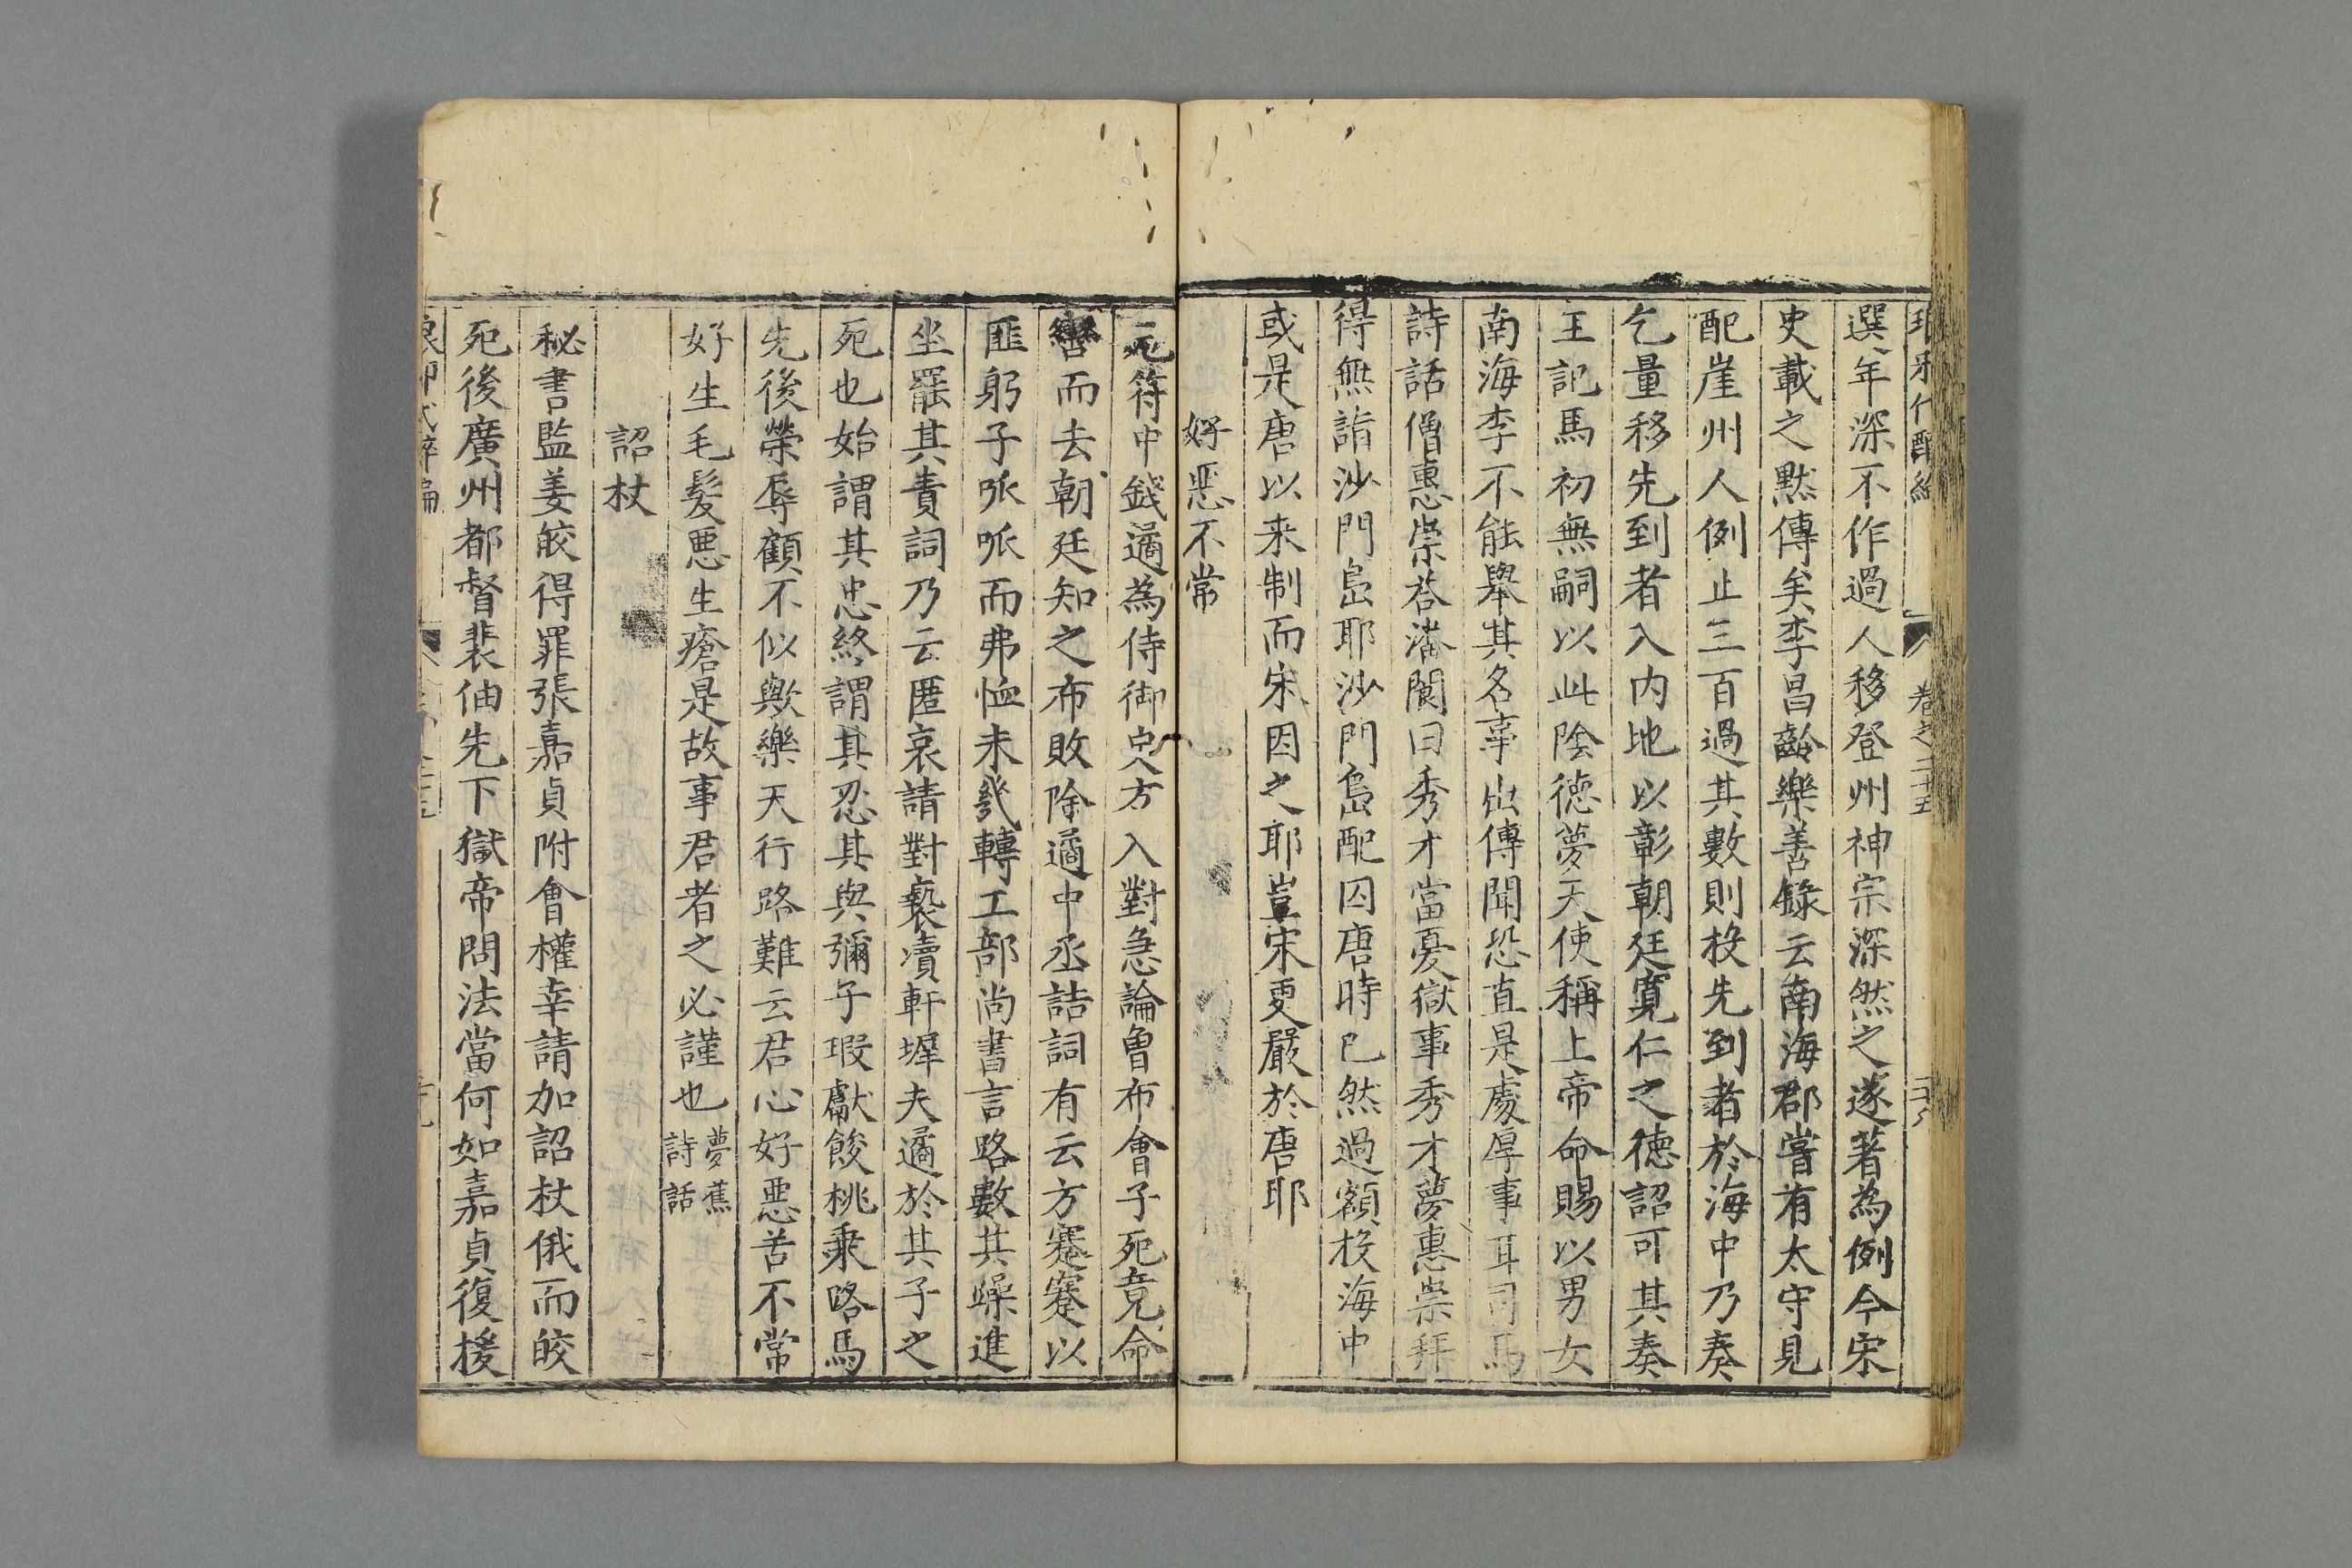 卷之二十五
二十八
選年深不作過人移登州神宗深然之遂著為例今宋
史載之黙傳矣李昌齡樂善錄云南海郡嘗有太守見
配崖州人例止三百過其數則投先到者於海中乃奏
乞量移先到者入內地以彰朝廷寬仁之德詔可其奏
王記馬初無嗣以此陰德夢天使稱上帝命賜以男女
南海李不能舉其名事出傳聞恐直是處厚事耳司馬
詩話僧惠崇荅潘閬曰秀才當憂獄事秀才夢惠崇拜
得無詣沙門島耶沙門島配囚唐時已然過額投海中
或是唐以来制而宋因之耶豈宋更嚴於唐耶
好惡不常
元符中錢遹為侍御史方入對急論魯布會子死竟命
轡而去朝廷知之布敗除遹中丞誥詞有云方蹇蹇以
匪躬子呱呱而弗恤未幾轉工部尚書言路數其躁進
坐罷其責詞乃云匿哀請對褻瀆軒墀夫遹於其子之
死也始謂其忠終謂其忍其與彌子瑕獻餕桃乘路馬
先後榮辱顧不似歟樂天行路難云君心好惡苦不常
好生毛髮惡生瘡是故事君者之必謹也夢蕉
詩話
詔杖
秘書監姜皎得罪張嘉貞附會權幸請加詔杖俄而皎
死後廣州都督裴伷先下獄帝問法當何如嘉貞復援